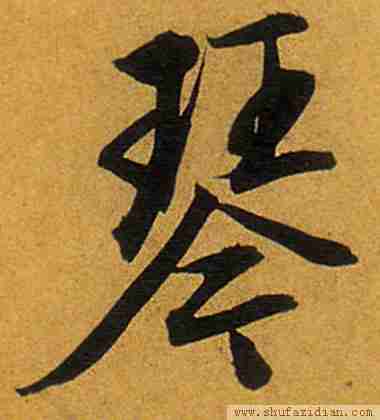 琴
www.shufazidian.com